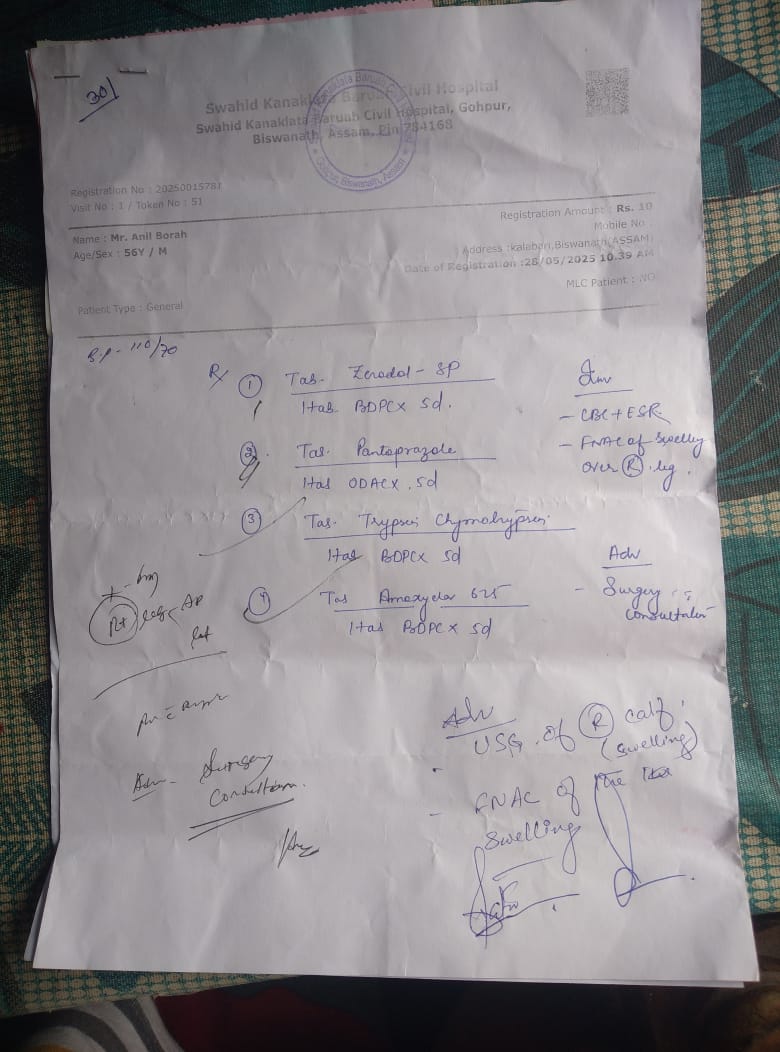 301
Swahid Kanaklata Baruah Civil Hospital
Swahid Kanaklata Baruah Civil Hospital, Gohpur,
Biswanath, Assam, Pin 784168
Registration No : 20250015781
Visit No : 1 / Token No : 51
Registration Amount : Rs. 10
Mobile No :
Name : Mr. Anil Borah
Age/Sex : 56Y / M
Address :kalabari,Biswanath(ASSAM)
Date of Registration :28/05/2025 10.39 AM
MLC Patient : NO
Patient Type : General
B.P - 110/70
Rx
① Tab. Zerodol - SP
1 tab BDPC x 5d.
② Tab. Pantoprazole
1 tab ODAC x 5d
③ Tab. Trypsin Chymotrypsin
1 tab BDPC x 5d
④ Tab Amoxyclav 625
1 tab BDPC x 5d
Inv
- CBC + ESR
- FNAC of swelling
over Ⓡ leg.
Adv
- Surgery
consultation
Rt leg AP
lat
Adv - Surgery
Consultation.
Adv
USG of Ⓡ calf
(swelling)
- FNAC of the
swelling